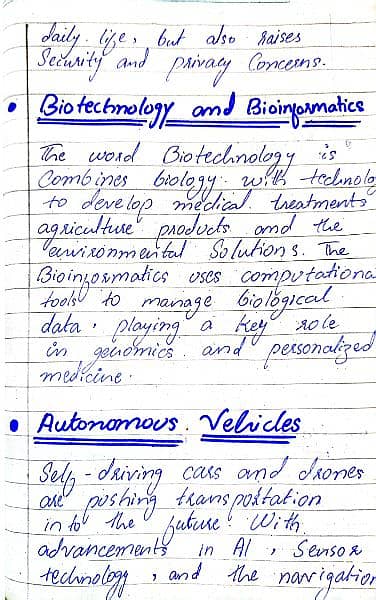 daily life, but also raises
Security and privacy Concerns.
• Biotechnology and Bioinformatics
The word Biotechnology is
Combines biology with technolo
to develop medical treatments
agriculture products and the
environmental Solutions. The
Bioinformatics uses computationa
tools to manage biological
data, playing a key role
in genomics and personalized
medicine.
• Autonomous Vehicles
Self-driving cars and drones
are pushing transportation
into the future. With
advancements in AI, Sensor
technology, and the navigation